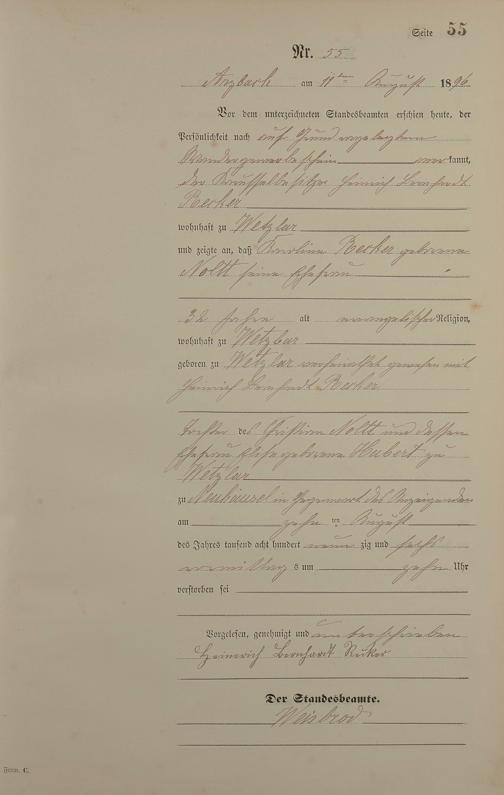 Seite 55
Nr. 55
Arzbach am 11ten August 1896
Vor dem unterzeichneten Standesbeamten erschien heute, der
Persönlichkeit nach auf Grund vorgelegten
Wandergewerbeschein anerkannt,
der Karusselbesitzer Heinrich Bernhardt
Becker
wohnhaft zu Wetzlar
und zeigte an, daß Karolina Becker geborene
Noltt seine Ehefrau
32 Jahre alt evangelischer Religion,
wohnhaft zu Wetzlar
geboren zu Wetzlar verheirathet gewesen mit
Heinrich Bernhardt Becker
Tochter des Christian Noltt und dessen
Ehefrau Elise geborene Hubert zu
Wetzlar
zu Neuhäusel in Gegenwart des Anzeigenden
am zehn ten August
des Jahres tausend acht hundert neun zig und sechs
vormittag s um zehn Uhr
verstorben sei
Vorgelesen, genehmigt und unterschrieben
Heinrich Bernhardt Becker
Der Standesbeamte.
Weisbrod
Form. C.